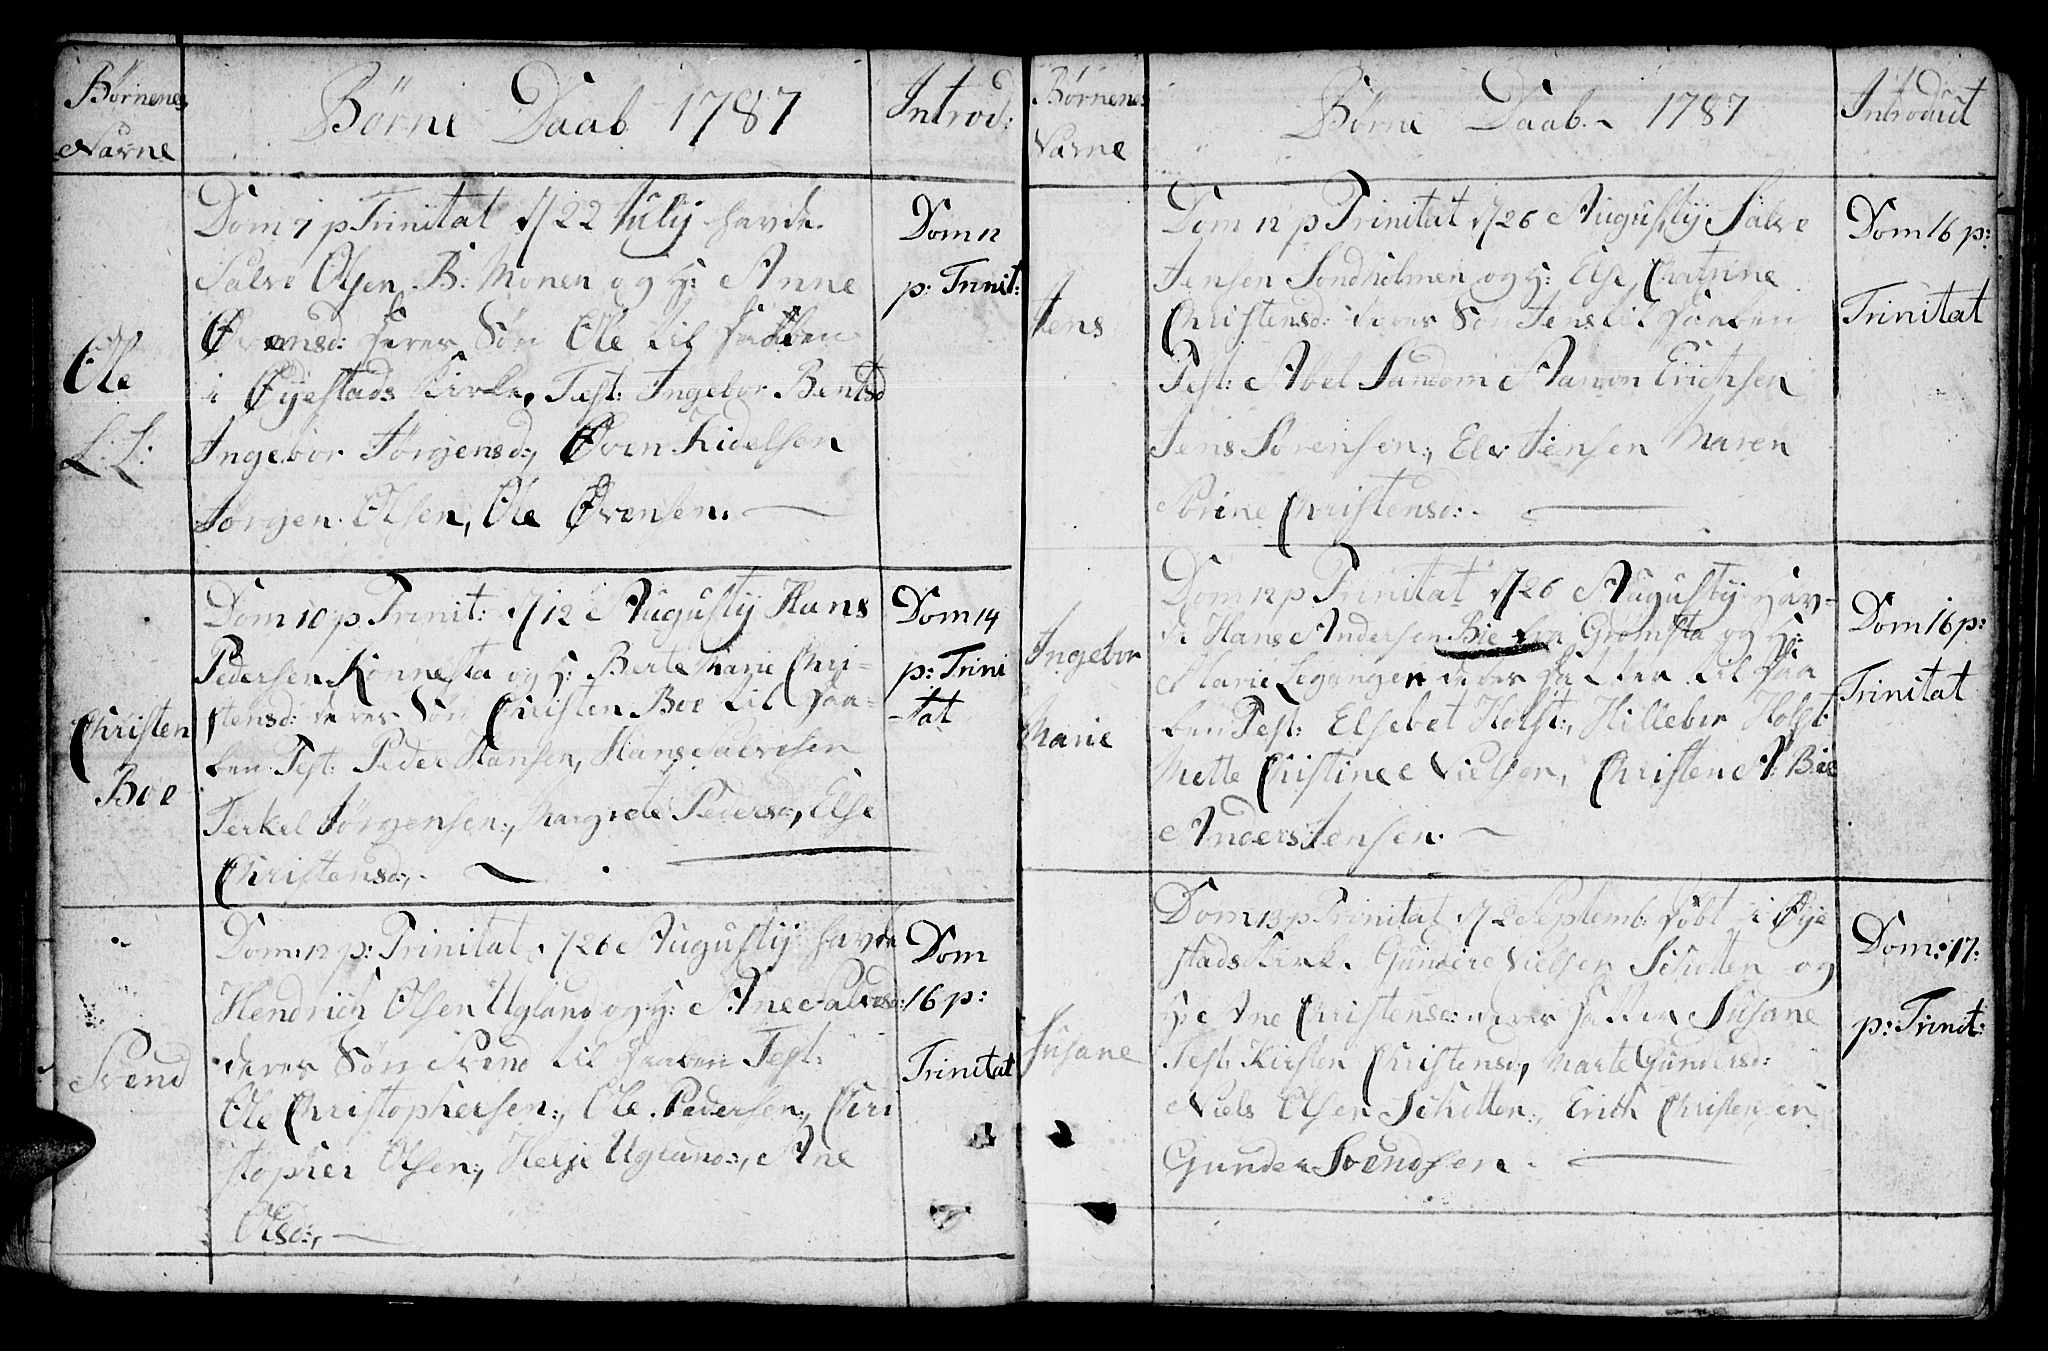 Børnenes
Navne
Børne Daab 1787
Introd:
Ole
L: L:
Dom 7 p Trinitat d/22 July havde
Salve Olsen B: Monen og H: Anne
Ovensd: deres Søn Ole til Daaben
i Øijestads Kirke, Test: Ingebor Bentsd
Ingebor Jørgensd:, Oven Kidelsen
Jørgen Olsen, Ole Ovensen.
Dom 12
p: Trinit:
Christen
Boe
Dom 10 p Trinit: d/12 Augustij Hans
Pedersen Rønnesta og H: Berte Marie Chri-
stensd: deres Søn Christen Boe til Daa-
ben Test: Peder Hansen, Hans Salvesen
Terkel Jørgensen:, Margrete Pedersd:, Else
Christensd:,
Dom 14
p: Trini
-tat
Svend
Dom: 12 p: Trinitat d/26 Augustij havde
Hendrich Olsen Ugland og H: Ane Salvesd:
deres Søn Svend til Daaben Test:
Ole Christophersen:, Ole Pedersen:, Chri
stopher Olsen:, Helje Ugland:, Ane
Olsd:,
Dom
16 p:
Trinitat
Børnenes
Navne
Børne Daab 1787
Introduct
Jens
Dom 12 p Trinitat d/26 Augustij Salve
Jensen Sondholmen og H: Else Chatrine
Christensd: deres Søn Jens til Daaben
Test: Abel Sandom Aanon Erichsen
Jens Sørensen:, Elev Jensen Maren
Sorine Christensd:
Dom 16 p:
Trinitat
Ingebor
Marie
Dom 12 p Trinitat d/26 Augustij hav-
de Hans Andersen Bie fra Grømsta og H:
Marie Legangen deres Datter til Daa
ben Test: Elsebet Holst:, Hillebor Holst
Mette Christine Nielsen, Christen A: Bie
Anders Jensen.
Dom 16 p:
Trinitat
Susane
Dom 13 p Trinitat d/2 Septemb: døbt i Øije
stads Kirke Gunder Nielsen Scholten og
H: Ane Christensd: deres Datter Susane
Test: Kirsten Christensd:, Marte Gundersd:
Niels Olsen Scholten:, Erich Christensen
Gunder Svendsen.
Dom: 17:
p: Trinit: